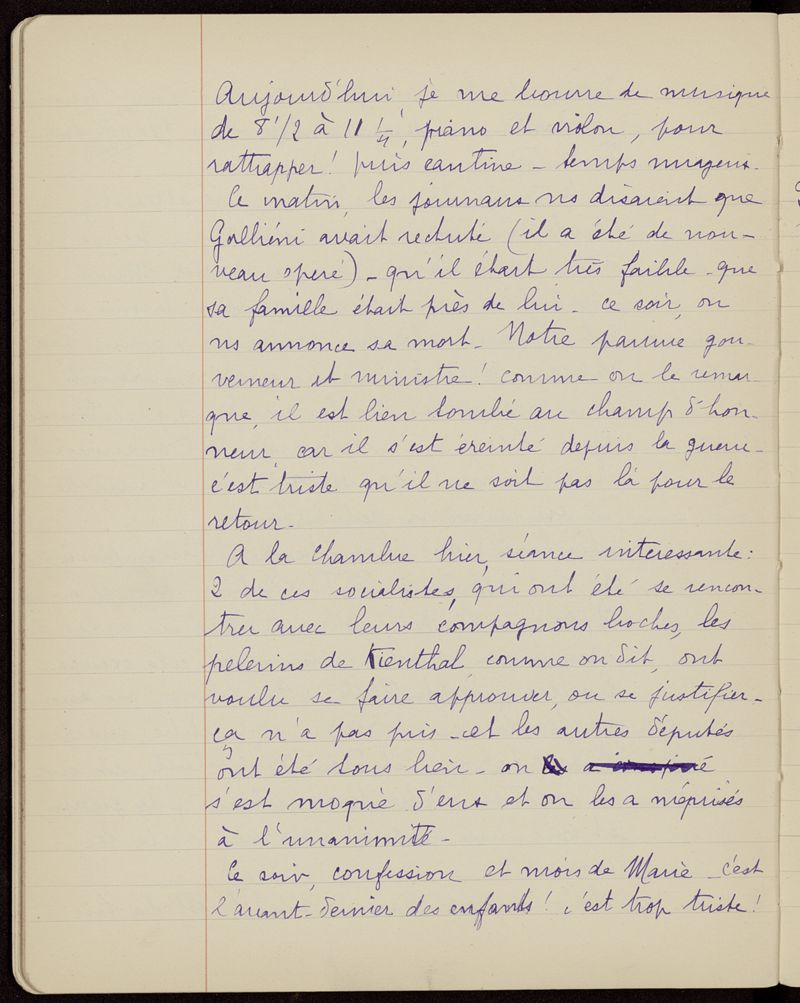 Aujourd'hui je me bourre de musique
de 8 1/2 à 11 1/4, piano et violon, pour
rattrapper! puis cantine – temps nuageux.
Ce matin, les journaux ns disaient que
Galliéni avait rechuté (il a été de nou-
veau opéré) – qu'il était très faible – que
sa famille était près de lui – ce soir, on
ns annonce sa mort – Notre pauvre gou-
verneur et ministre! comme on le remar-
que, il est bien tombé au champ d'hon-
neur, car il s'est éreinté depuis la guerre –
c'est triste qu'il ne soit pas là pour le
retour –
A la Chambre hier, séance interessante:
2 de ces socialistes, qui ont été se rencon-
trer avec leurs compagnons boches, les
pelerins de Kienthal, comme on dit, ont
voulu se faire approuver, ou se justifier –
ça n'a pas pris – et les autres députés
ont été tous bien – on
s'est moqué d'eux et on les a méprisés
à l'unanimité –
Ce soir, confession et mois de Marie – c'est
l'avant-dernier des enfants! c'est trop triste!